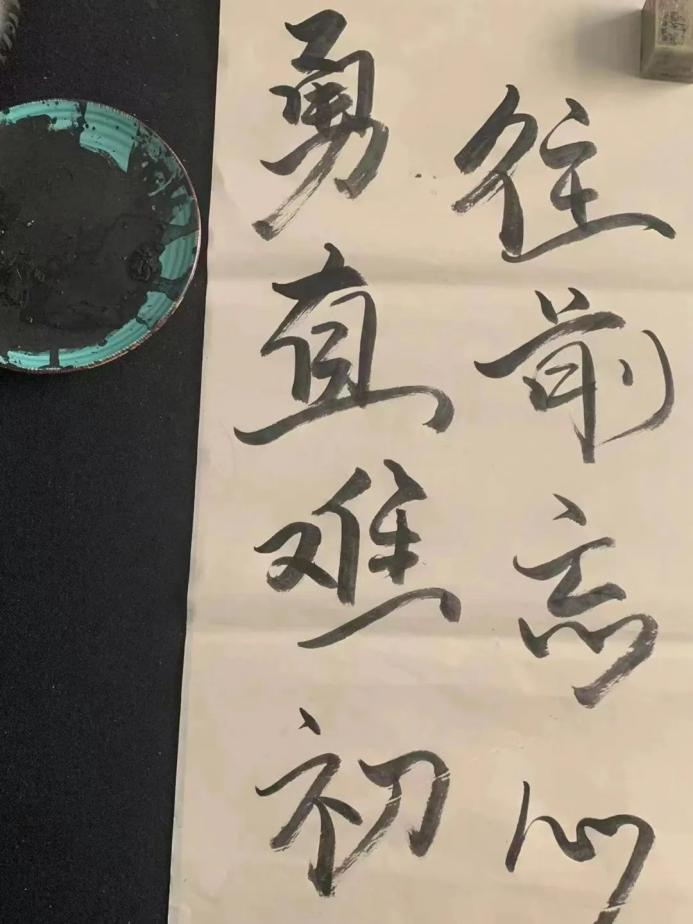 勇往
直前
难忘
初心